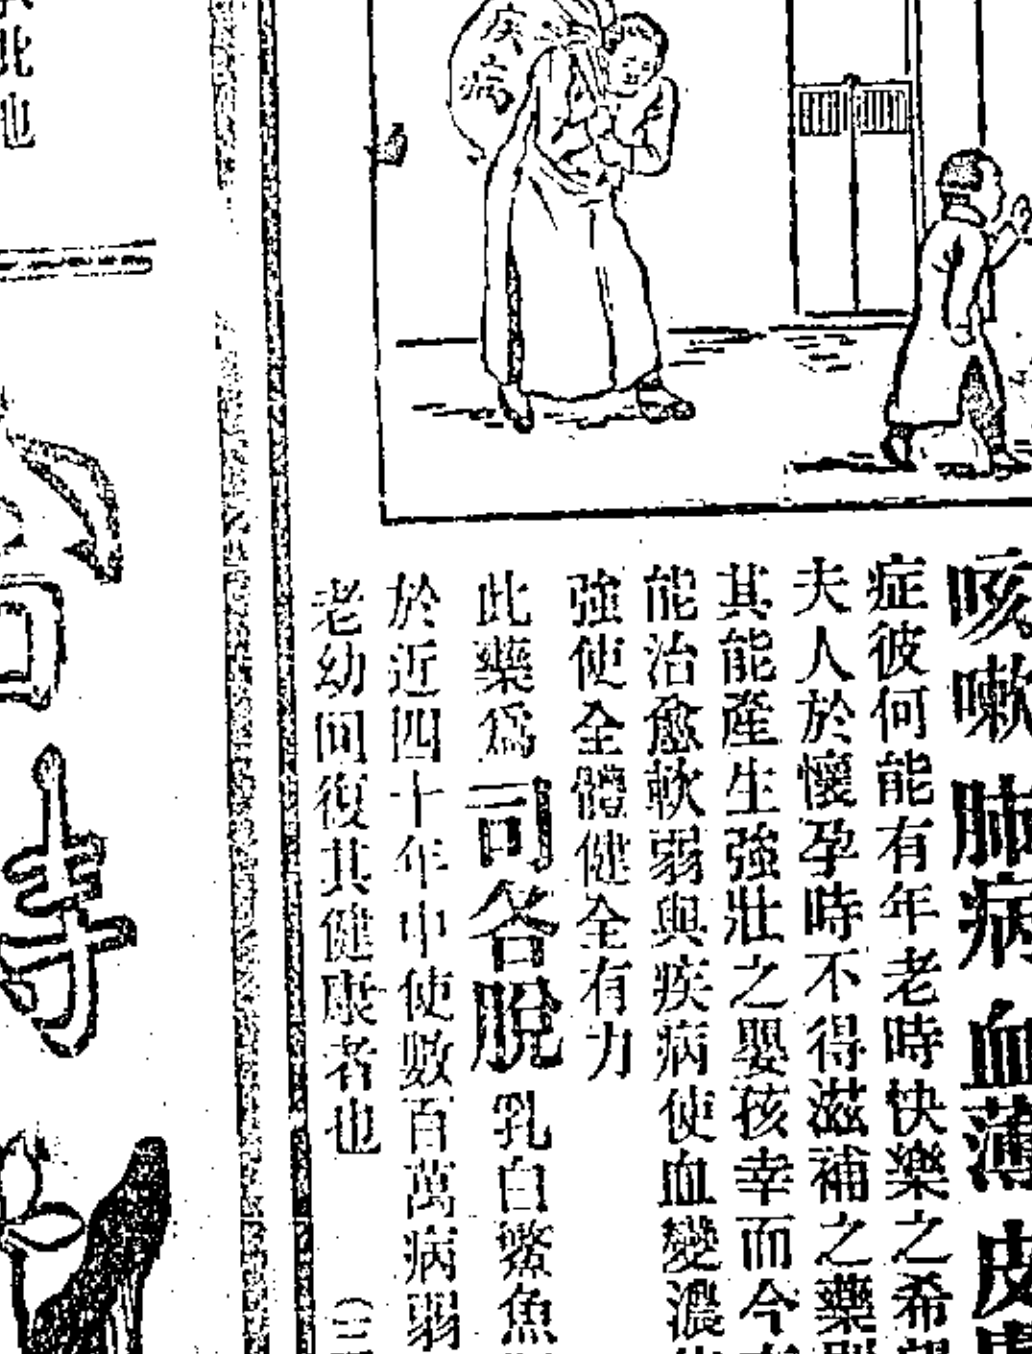 疾病
咳嗽 肺病 血薄 皮膚
症彼何能有年老時快樂之希望
夫人於懷孕時不得滋補之藥則
其能產生強壯之嬰孩幸而今有
能治愈軟弱與疾病使血變濃
強使全體健全有力
此藥爲司各脫乳白鰵魚
於近四十年中使數百萬病弱
老幼回復其健康者也
此也
寺